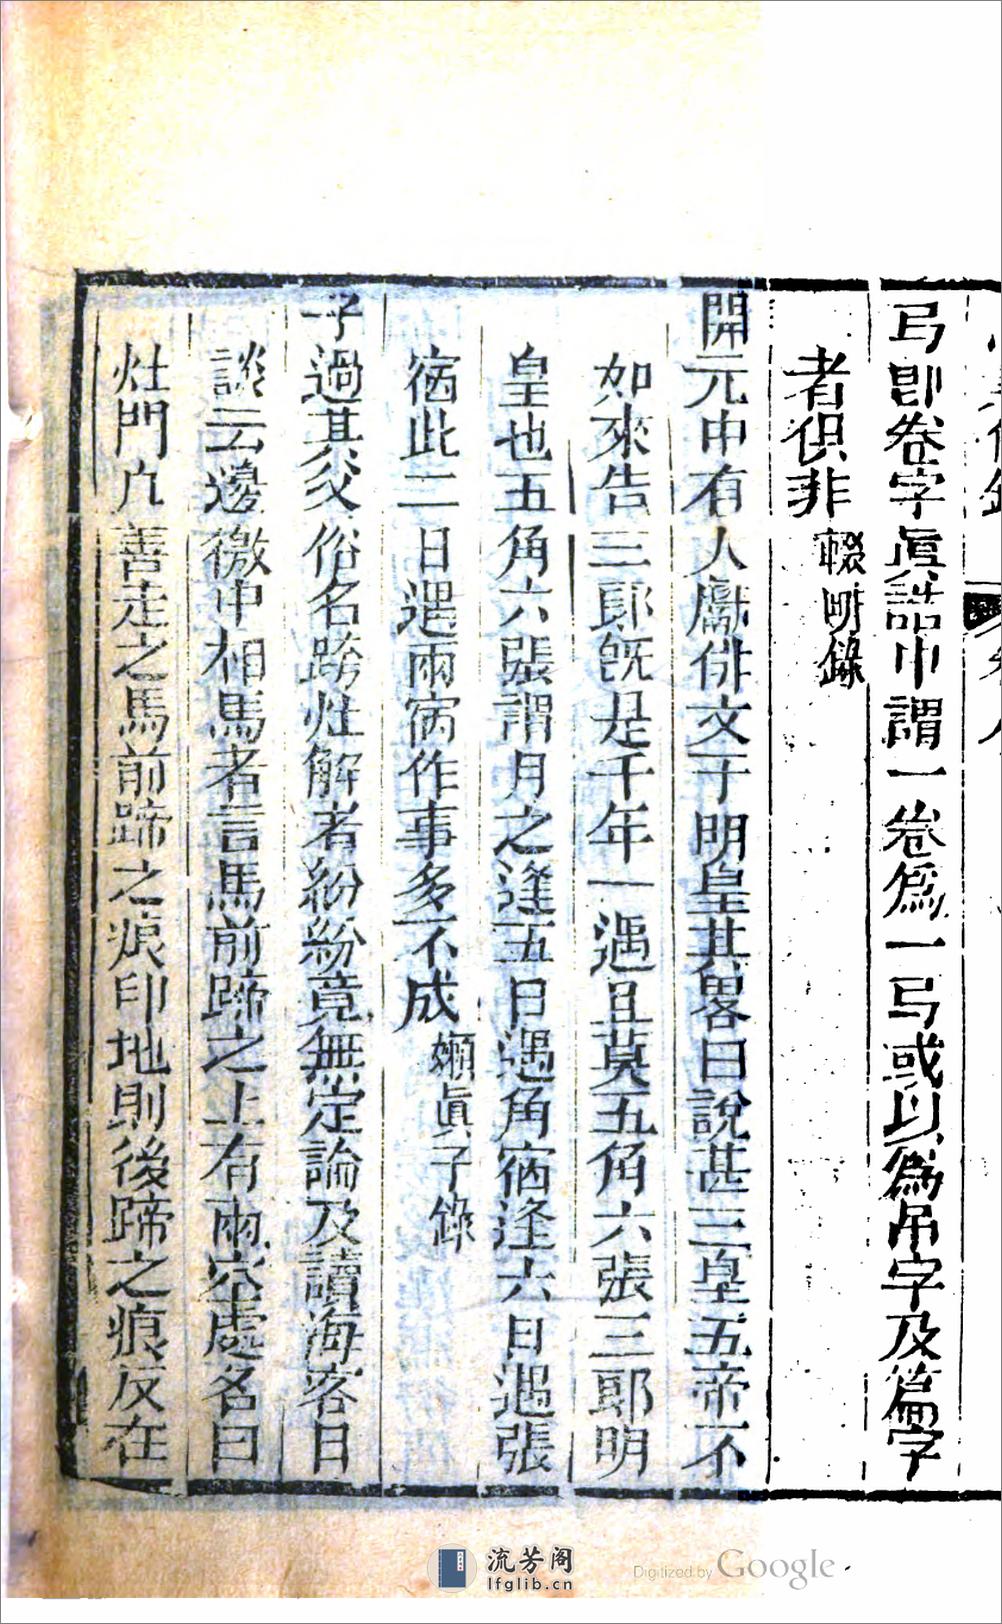 弓即卷字真誥中謂一卷為一弓或以為吊字及篇字
者俱非 輟畊錄
開元中有人獻俳文于明皇其畧曰說甚三皇五帝不
如來告三郎既是千年一遇且莫五角六張三郎明
皇也五角六張謂月之逢五日遇角宿逢六日遇張
宿此二日遇兩宿作事多不成 嬾真子錄
子過其父俗名跨灶解者紛紛竟無定論及讀海客日
談云邊徼中相馬者言馬前蹄之上有兩空處名曰
灶門凡善走之馬前蹄之痕印地則後蹄之痕反在
流芳阁
lfglib.cn
Digitized by Google